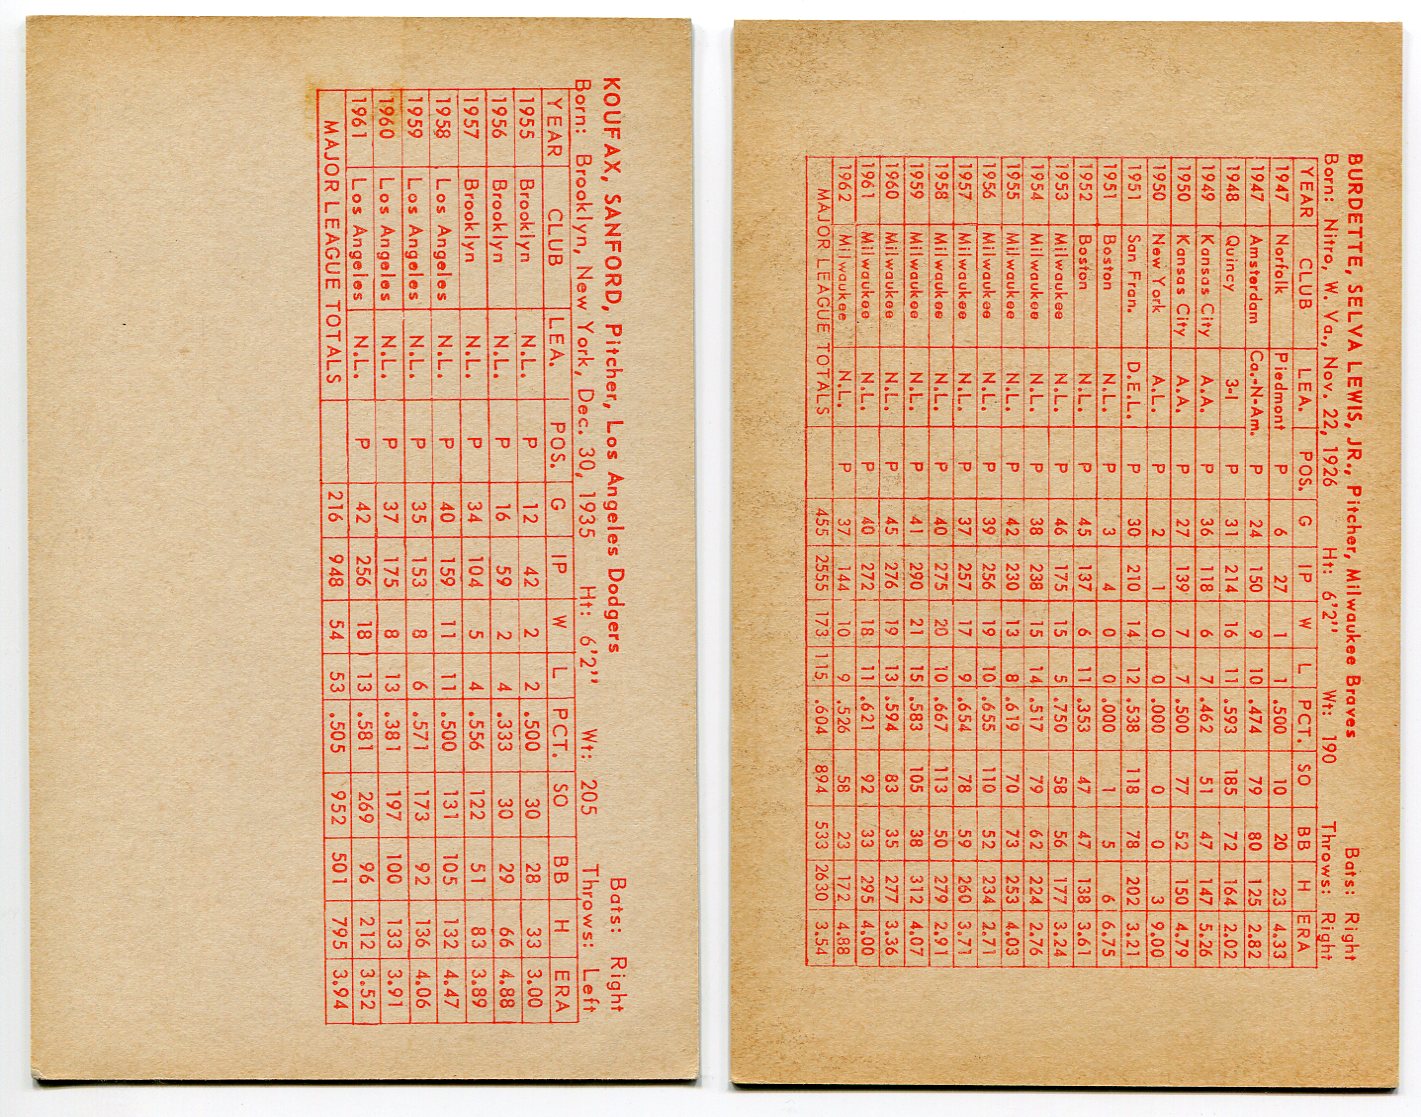 KOUFAX, SANFORD, Pitcher, Los Angeles Dodgers Bats: Right
Born: Brooklyn, New York, Dec. 30, 1935 Ht: 6'2" Wt: 205 Throws: Left
YEAR CLUB LEA. POS. G IP W L PCT. SO BB H ERA
1955 Brooklyn N.L. P 12 42 2 2 .500 30 28 33 3.00
1956 Brooklyn N.L. P 16 59 2 4 .333 30 29 66 4.88
1957 Brooklyn N.L. P 34 104 5 4 .556 122 51 83 3.89
1958 Los Angeles N.L. P 40 159 11 11 .500 131 105 132 4.47
1959 Los Angeles N.L. P 35 153 8 6 .571 173 92 136 4.06
1960 Los Angeles N.L. P 37 175 8 13 .381 197 100 133 3.91
1961 Los Angeles N.L. P 42 256 18 13 .581 269 96 212 3.52
MAJOR LEAGUE TOTALS 216 948 54 53 .505 952 501 795 3.94
BURDETTE, SELVA LEWIS, JR., Pitcher, Milwaukee Braves Bats: Right
Born: Nitro, W. Va., Nov. 22, 1926 Ht: 6'2" Wt: 190 Throws: Right
YEAR CLUB LEA. POS. G IP W L PCT. SO BB H ERA
1947 Norfolk Piedmont P 6 27 1 1 .500 10 20 23 4.33
1947 Amsterdam Ca.-N-Am. P 24 150 9 10 .474 79 80 125 2.82
1948 Quincy 3-I P 31 214 16 11 .593 185 72 164 2.02
1949 Kansas City A.A. P 36 118 6 7 .462 51 47 147 5.26
1950 Kansas City A.A. P 27 139 7 7 .500 77 52 150 4.79
1950 New York A.L. P 2 1 0 0 .000 0 0 3 9.00
1951 San Fran. D.E.L. P 30 210 14 12 .538 118 78 202 3.21
1951 Boston N.L. P 3 4 0 0 .000 1 5 6 6.75
1952 Boston N.L. P 45 137 6 11 .353 47 47 138 3.61
1953 Milwaukee N.L. P 46 175 15 5 .750 58 56 177 3.24
1954 Milwaukee N.L. P 38 238 15 14 .517 79 62 224 2.76
1955 Milwaukee N.L. P 42 230 13 8 .619 70 73 253 4.03
1956 Milwaukee N.L. P 39 256 19 10 .655 110 52 234 2.71
1957 Milwaukee N.L. P 37 257 17 9 .654 78 59 260 3.71
1958 Milwaukee N.L. P 40 275 20 10 .667 113 50 279 2.91
1959 Milwaukee N.L. P 41 290 21 15 .583 105 38 312 4.07
1960 Milwaukee N.L. P 45 276 19 13 .594 83 35 277 3.36
1961 Milwaukee N.L. P 40 272 18 11 .621 92 33 295 4.00
1962 Milwaukee N.L. P 37 144 10 9 .526 58 23 172 4.88
MAJOR LEAGUE TOTALS 455 2555 173 115 .604 894 533 2630 3.54